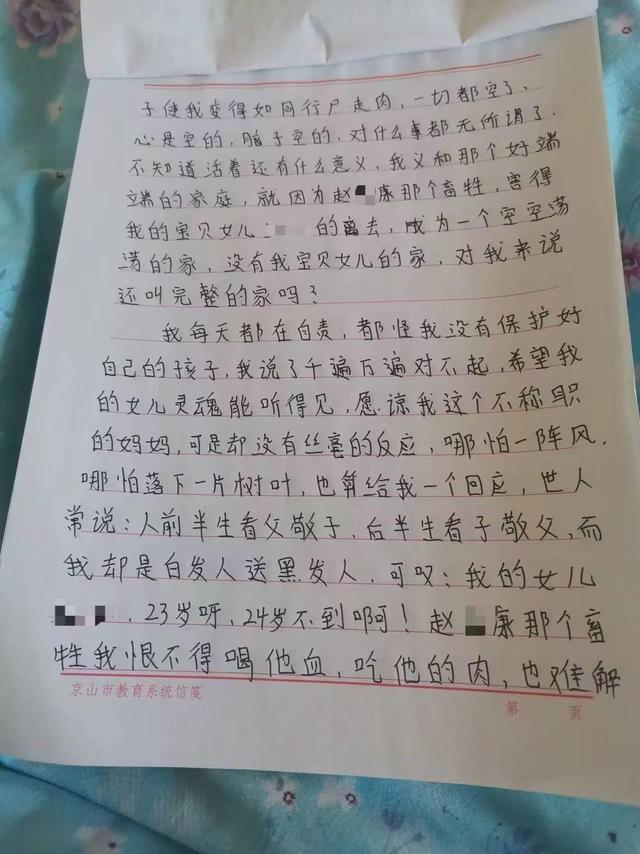 子使我变得如同行尸走肉，一切都空了、
心是空的，脑子空的，对什么事都无所谓了．
不知道活着还有什么意义，我义和那个好端
端的家庭，就因为赵 康那个畜牲，害得
我的宝贝女儿 的离去，成为一个空空荡
荡的家，没有我宝贝女儿的家，对我来说
还叫完整的家吗？
我每天都在自责，都怪我没有保护好
自己的孩子，我说了千遍万遍对不起，希望我
的女儿灵魂能听得见，愿谅我这个不称职
的妈妈，可是却没有丝毫的反应，哪怕一阵风．
哪怕落下一片树叶，也算给我一个回应，世人
常说：人前半生看父敬子，后半生看子敬父，而
我却是白发人送黑发人，可叹：我的女儿
．23岁呀、24岁不到啊！赵 康那个畜
牲我恨不得喝他血，吃他的肉，也难解
京山市教育系统信笺 第 页